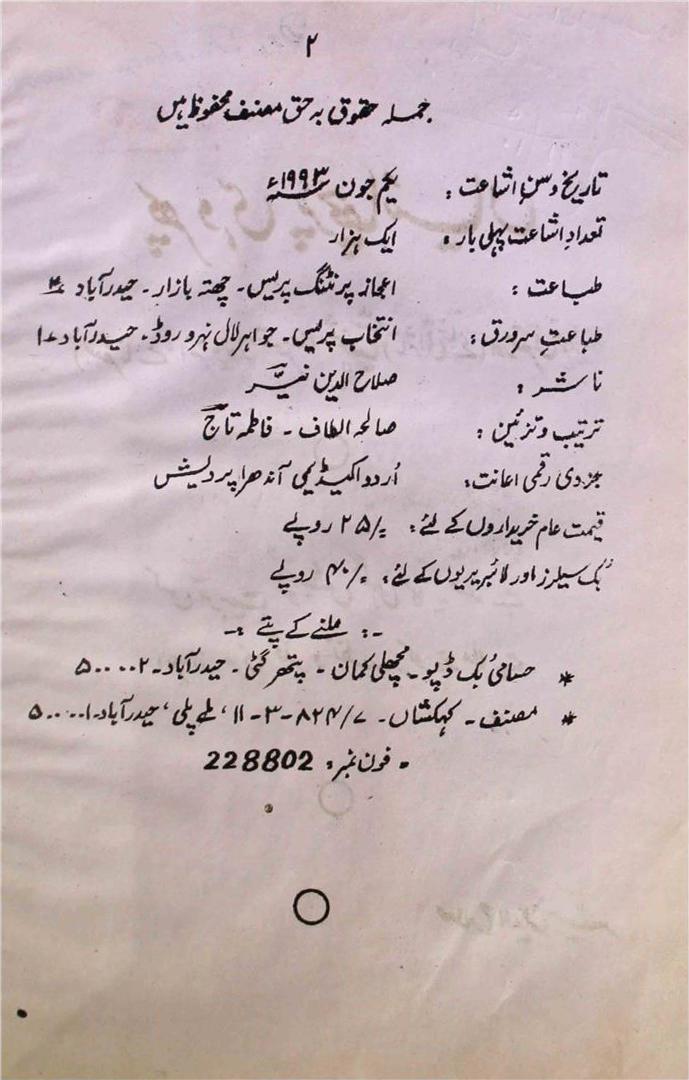 ۲
جملہ حقوق بہ حق مصنف محفوظ ہیں
تاریخ و سنِ اشاعت : یکم جون ۱۹۹۳ء
تعدادِ اشاعت پہلی بار : ایک ہزار
طباعت : اعجاز پرنٹنگ پریس۔ چھتہ بازار۔ حیدرآباد ۲
طباعتِ سرورق : انتخاب پریس۔ جواہر لال نہرو روڈ۔ حیدرآباد ۱
ناشر : صلاح الدین نیّر
ترتیب و تزئین : صالحہ الطاف ۔ فاطمہ تاج
جزوی رقمی اعانت : اُردو اکیڈیمی آندھرا پردیش
قیمت عام خریداروں کے لئے : ۲۵/= روپئے
بُک سیلرز اور لائبریریوں کے لئے : ۴۰/= روپئے
-: ملنے کے پتے :-
* حسامی بُک ڈپو۔ مچھلی کمان ۔ پتھر گٹی ۔ حیدرآباد۔ ۵۰۰۰۰۲
* مصنف ۔ کہکشاں۔ ۱۱-۳-۸۲۴/۷، ملے پلی، حیدرآباد۔ ۵۰۰۰۰۱
• فون نمبر : 228802